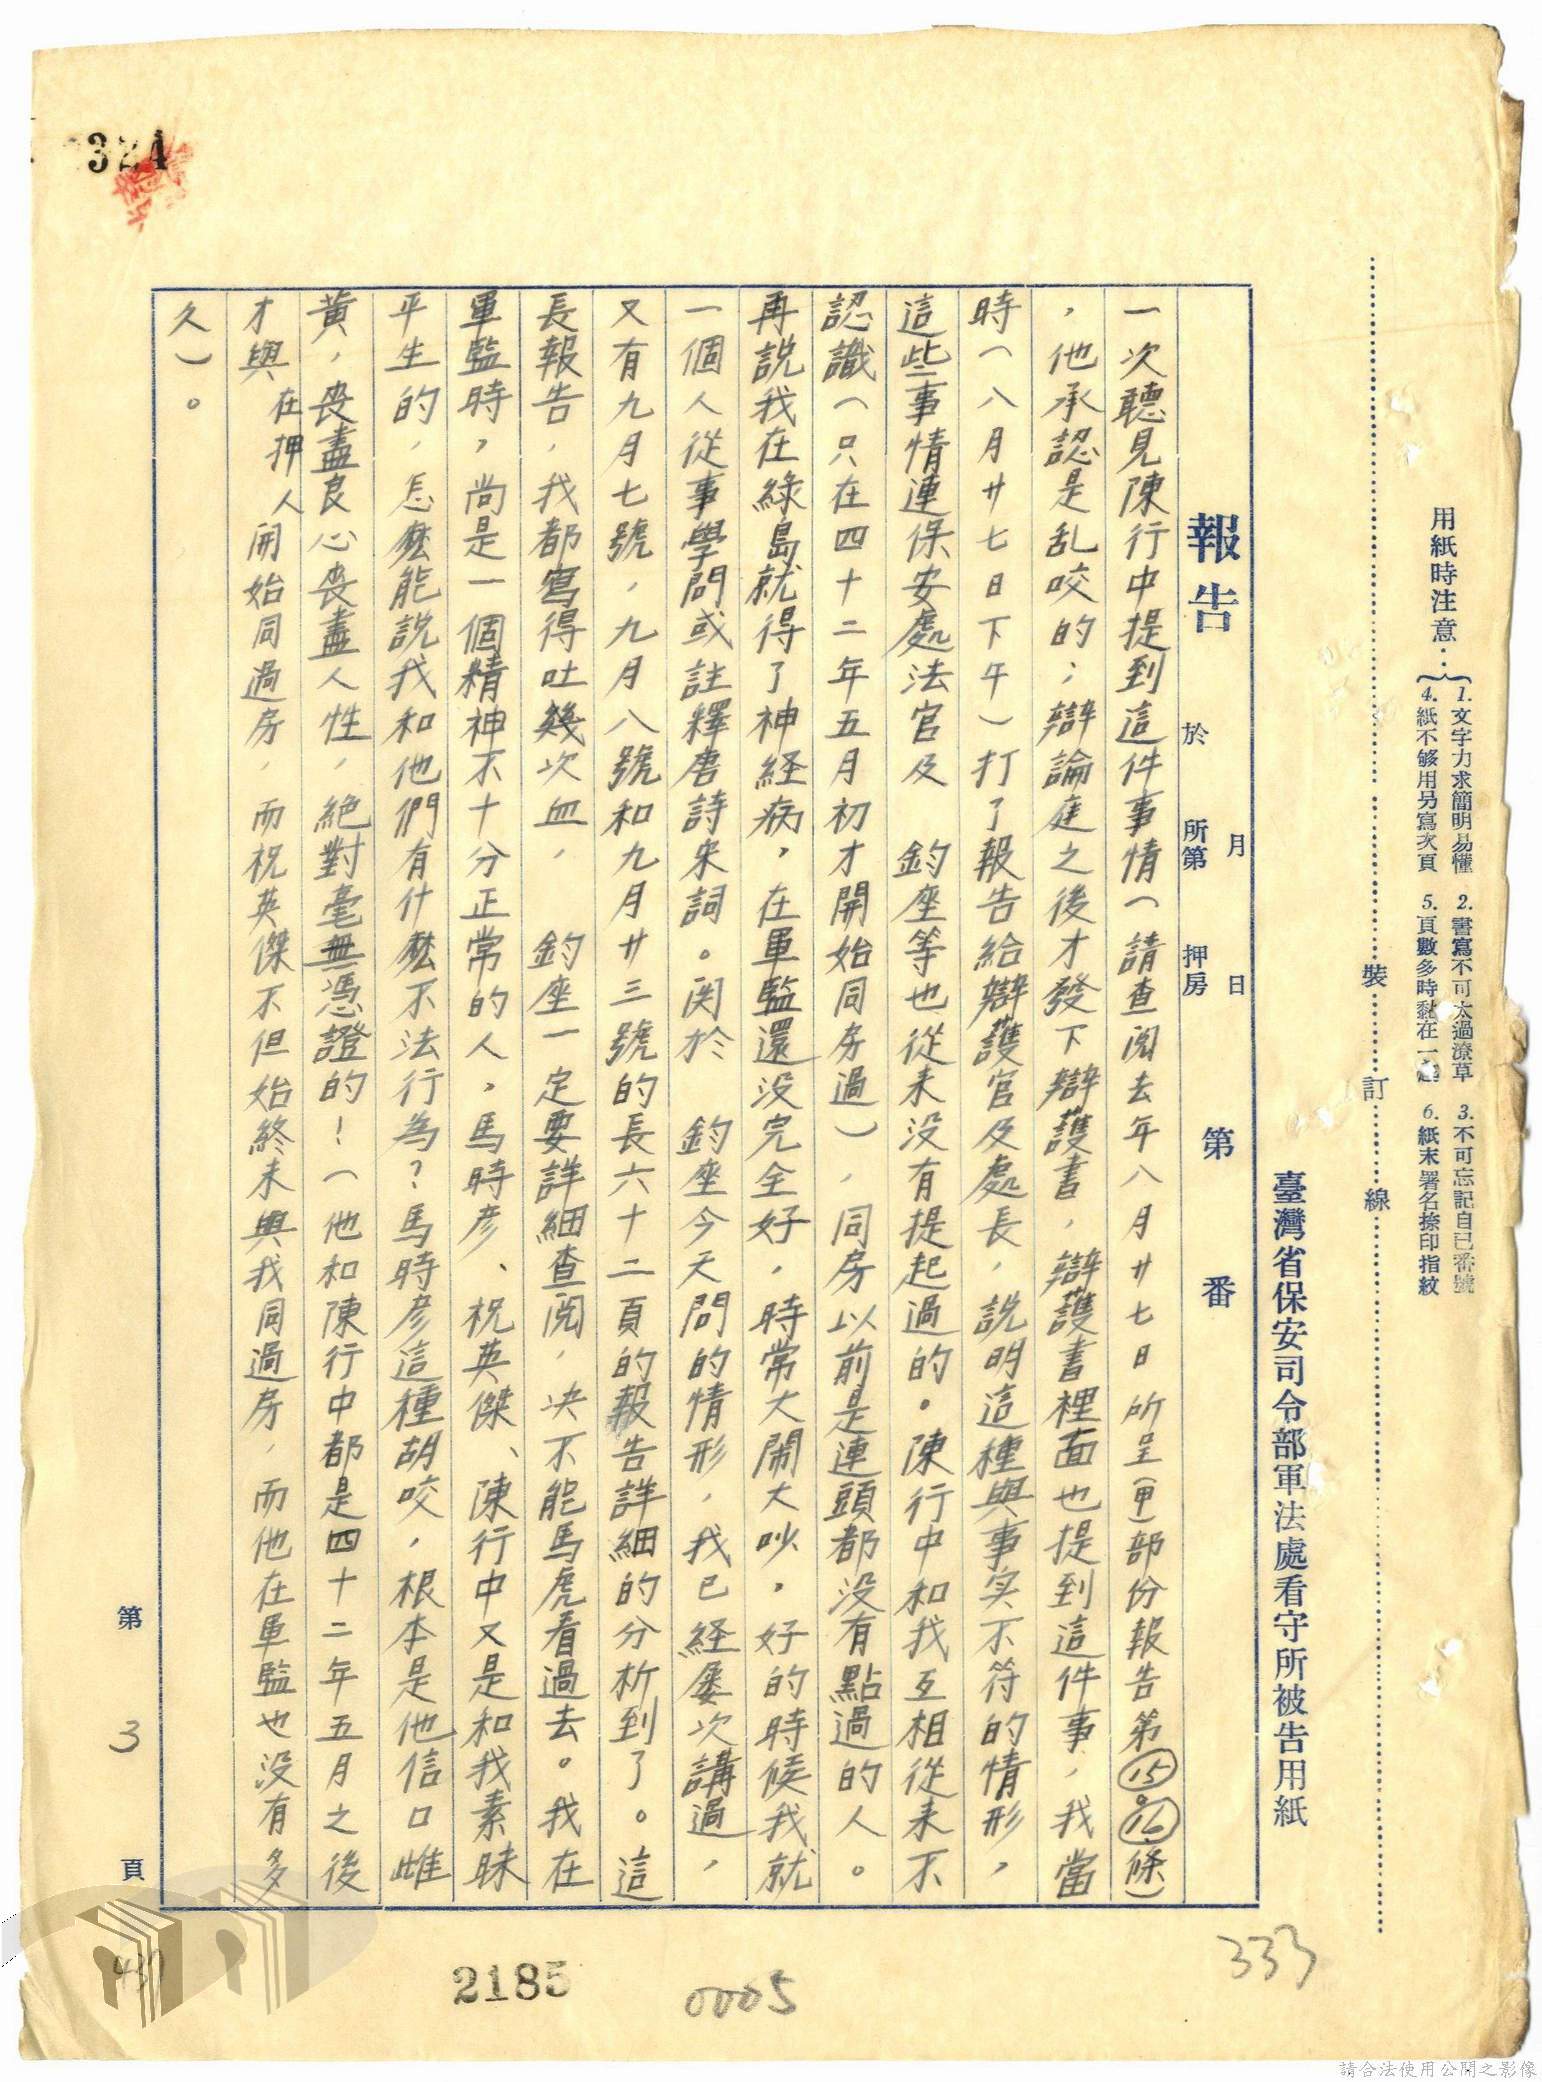 用紙時注意：
1. 文字力求簡明易懂 2. 書寫不可太過潦草 3. 不可忘記自己番號
4. 紙不够用另寫次頁 5. 頁數多時黏在一起 6. 紙末署名捺印指紋
裝訂線
臺灣省保安司令部軍法處看守所被告用紙
報告 於 月 日 所第 押房 第 番
一次聽見陳行中提到這件事情（請查閱去年八月廿七日所呈（甲）部份報告第⑮。⑯條）
，他承認是乱咬的；辯論庭之後才發下辯護書，辯護書裡面也提到這件事，我當
時（八月廿七日下午）打了報告給辯護官及處長，說明這種與事实不符的情形，
這些事情連保安處法官及　鈞座等也從来没有提起過的。陳行中和我互相從来不
認識（只在四十二年五月初才開始同房過），同房以前是連頭都没有點過的人。
再說我在綠島就得了神経病，在軍監還没完全好，時常大鬧大吵，好的時候我就
一個人從事學問或註釋唐詩宋詞。関於　鈞座今天問的情形，我已経屡次講過，
又有九月七號，九月八號和九月廿三號的長六十二頁的報告詳細的分析到了。這
長報告，我都寫得吐幾次血，　鈞座一定要詳細查閱，决不能馬虎看過去。我在
軍監時，尚是一個精神不十分正常的人，馬時彦、祝英傑、陳行中又是和我素昧
平生的，怎麽能說我和他們有什麽不法行為？馬時彦這種胡咬，根本是他信口雌
黃，喪盡良心喪盡人性，絕對毫無憑證的！（他和陳行中都是四十二年五月之後
才與在押人開始同過房，而祝英傑不但始終未與我同過房，而他在軍監也没有多
久）。
第 3 頁
324
333
2185
0005
437
請合法使用公開之影像